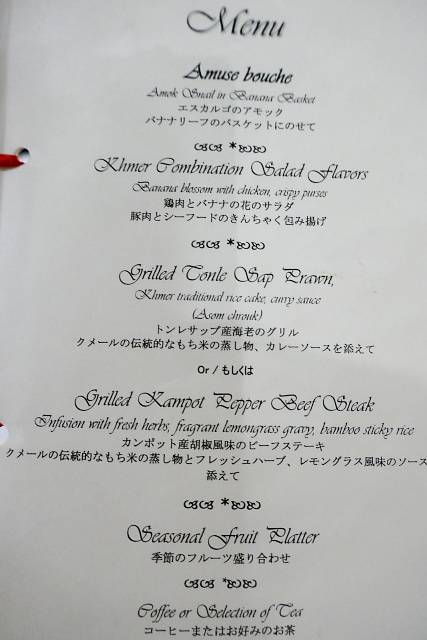 Menu
Amuse bouche
Amok Snail in Banana Basket
エスカルゴのアモック
バナナリーフのバスケットにのせて
Khmer Combination Salad Flavors
Banana blossom with chicken, crispy purses
鶏肉とバナナの花のサラダ
豚肉とシーフードのきんちゃく包み揚げ
Grilled Tonle Sap Prawn,
Khmer traditional rice cake, curry sauce
(Asom chrouk)
トンレサップ産海老のグリル
クメールの伝統的なもち米の蒸し物、カレーソースを添えて
Or / もしくは
Grilled Kampot Pepper Beef Steak
Infusion with fresh herbs, fragrant lemongrass gravy, bamboo sticky rice
カンポット産胡椒風味のビーフステーキ
クメールの伝統的なもち米の蒸し物とフレッシュハーブ、レモングラス風味のソース
添えて
Seasonal Fruit Platter
季節のフルーツ盛り合わせ
Coffee or Selection of Tea
コーヒーまたはお好みのお茶